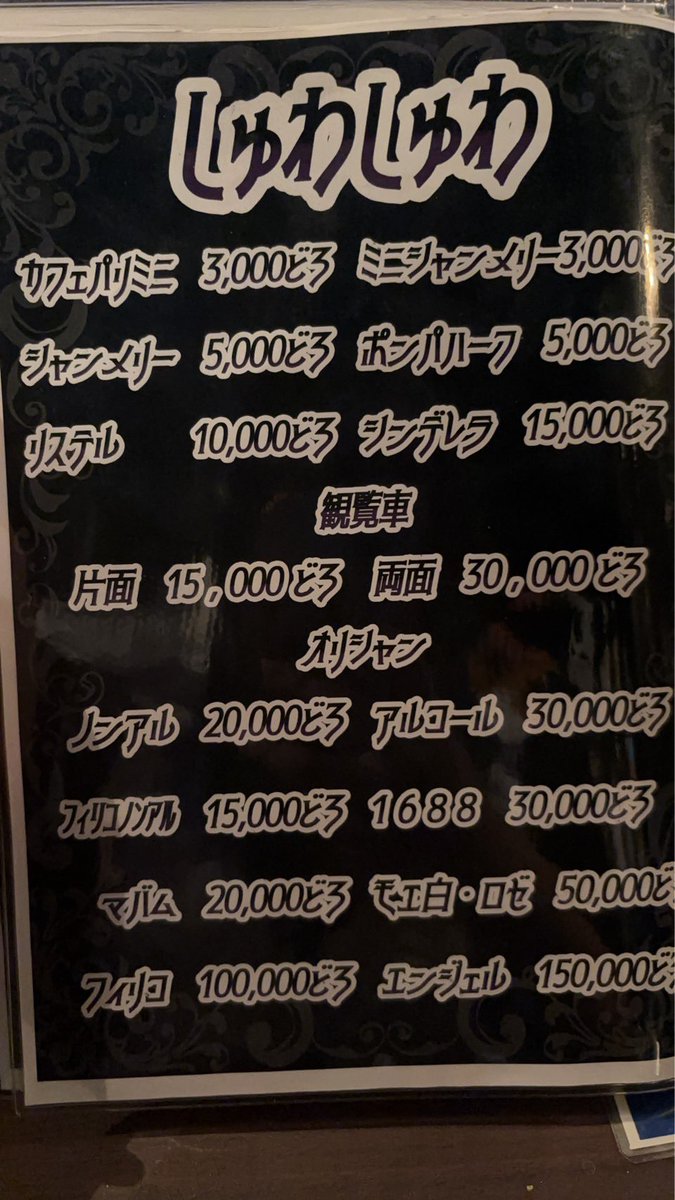 しゅわしゅわ
カフェパリミニ 3,000どろ ミニジャンメリー3,000どろ
シャンメリー 5,000どろ ポンパハーフ 5,000どろ
リステル 10,000どろ シンデレラ 15,000どろ
観覧車
片面 15,000どろ 両面 30,000どろ
オリシャン
ノンアル 20,000どろ アルコール 30,000どろ
フィリコノンアル 15,000どろ 1688 30,000どろ
マバム 20,000どろ モエ白・ロゼ 50,000ど
フィリコ 100,000どろ エンジェル 150,000ど